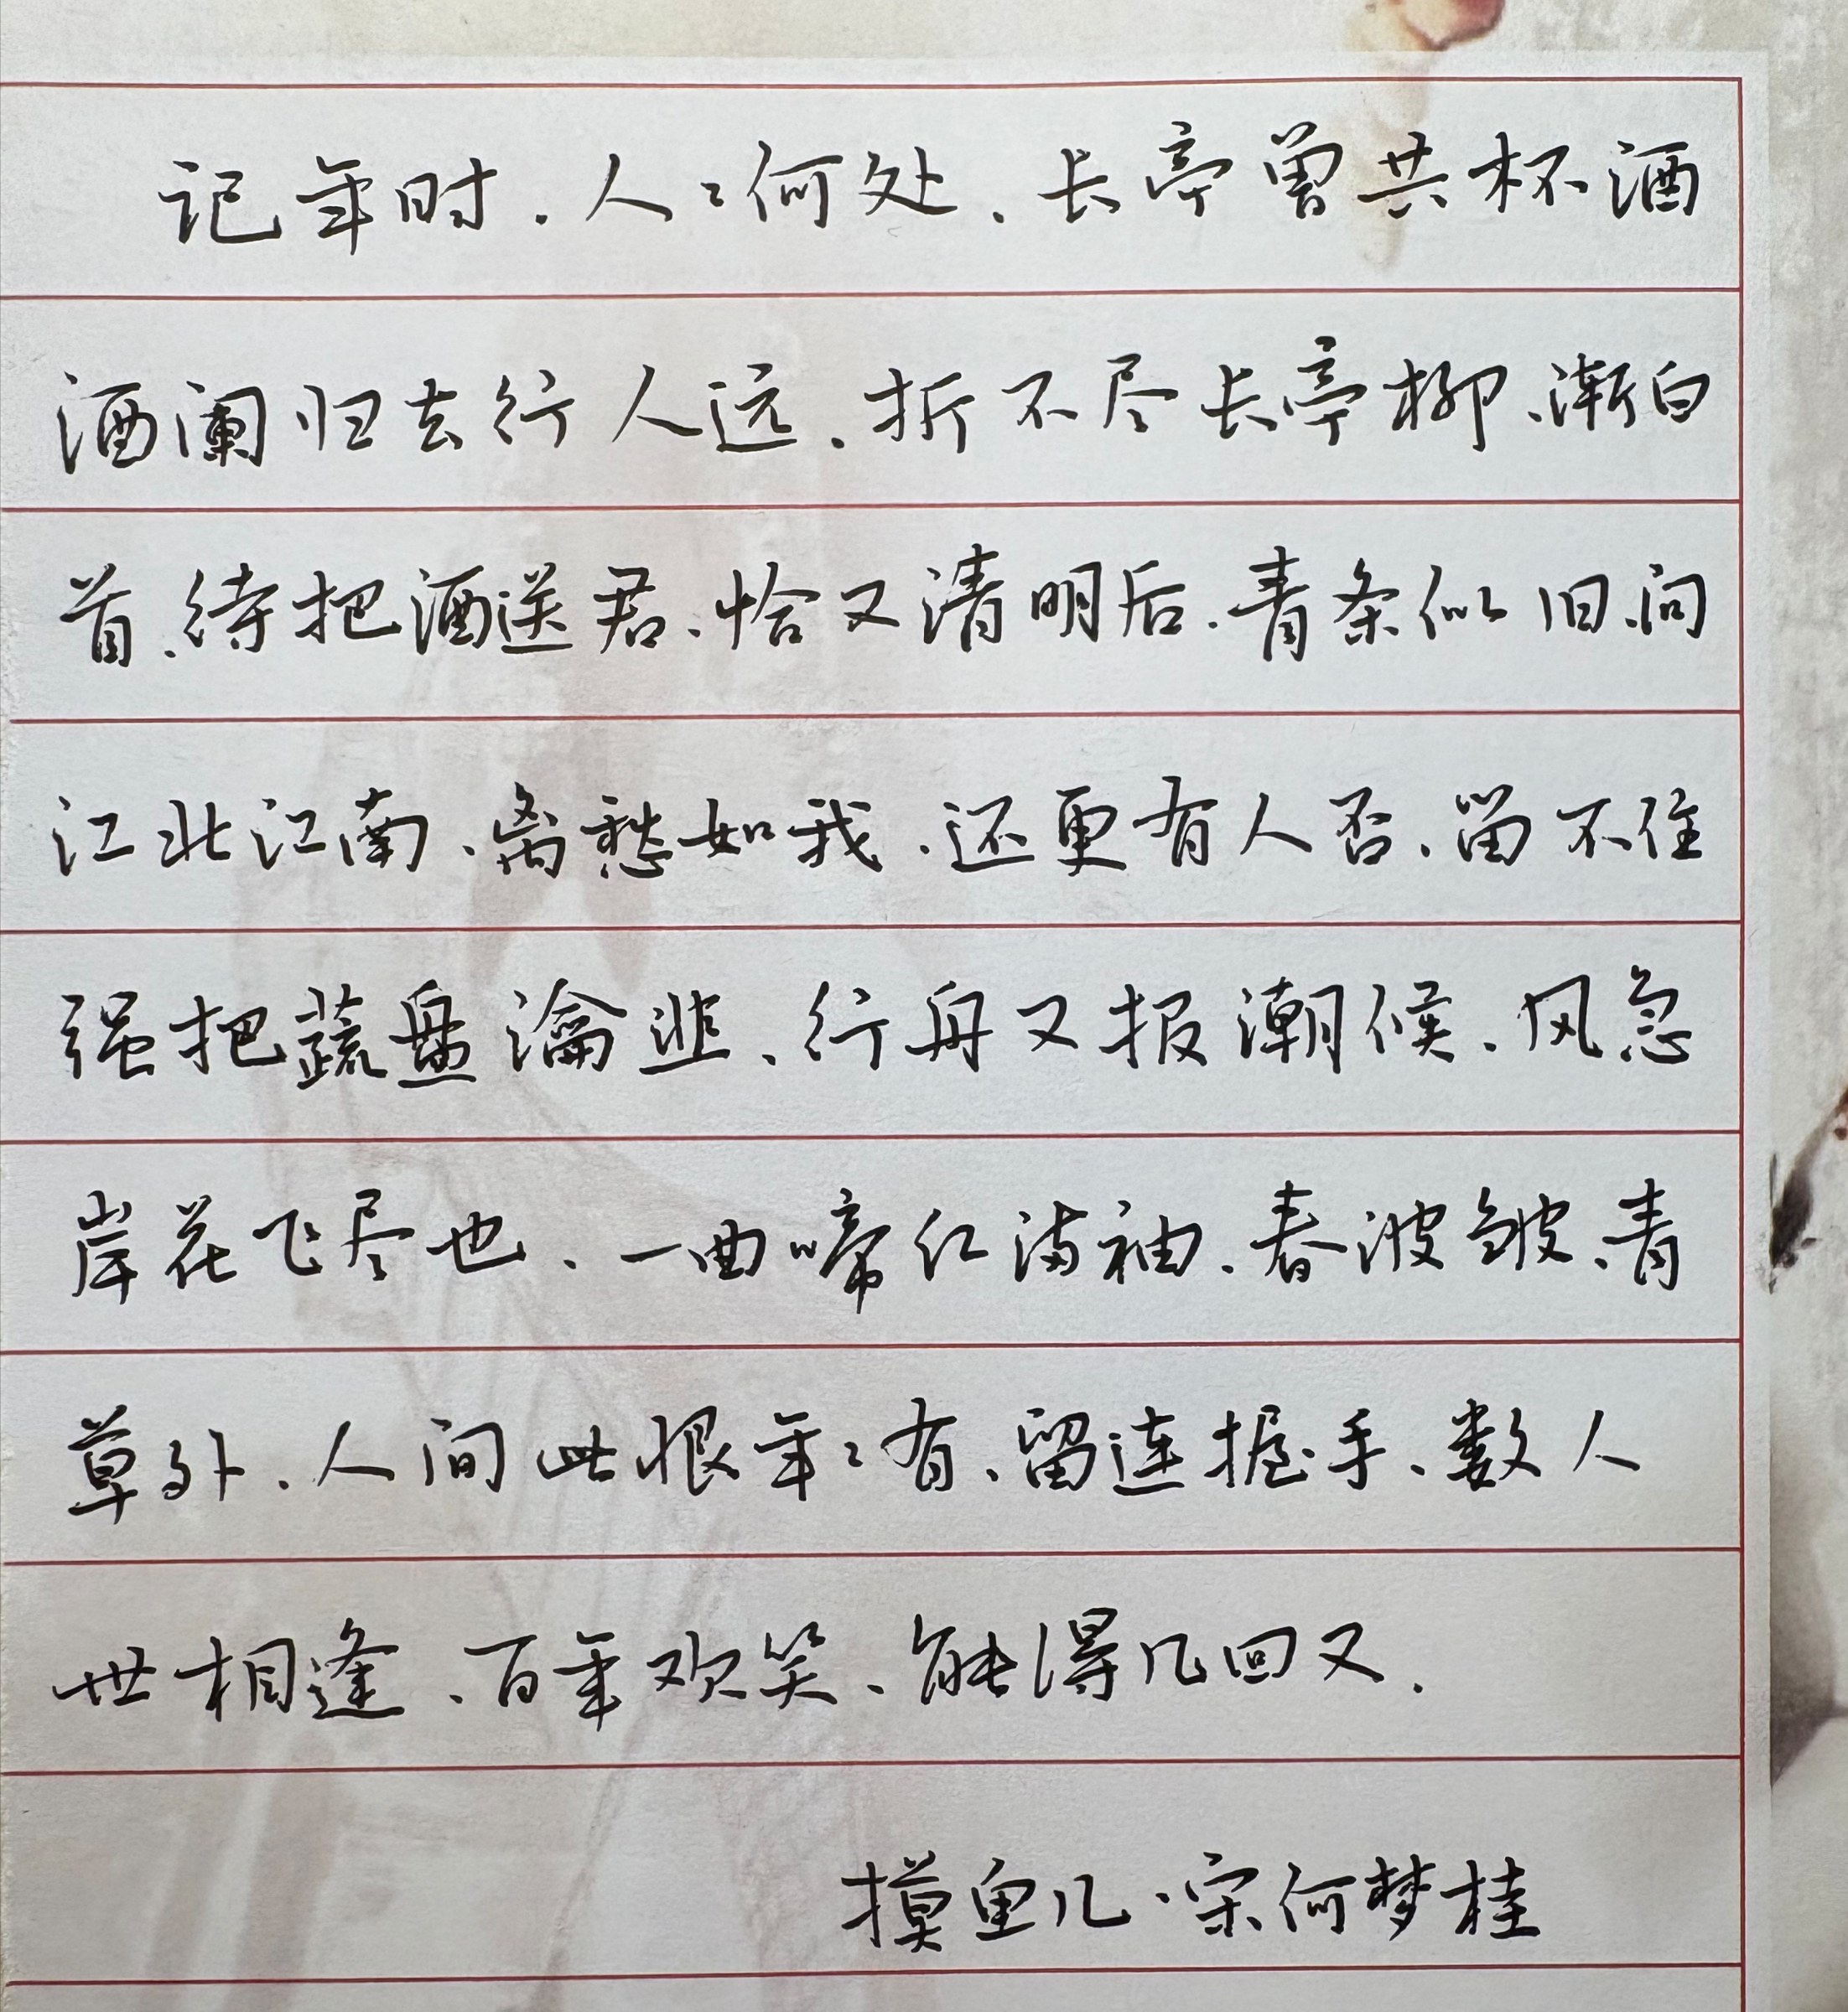 记年时.人々何处.长亭曾共杯酒
酒阑归去行人远.折不尽长亭柳.渐白
首.待把酒送君.恰又清明后.青条似旧.问
江北江南.离愁如我.还更有人否.留不住
强把蔬盘瀹韭.行舟又报潮候.风急
岸花飞尽也.一曲啼红满袖.春波皱.青
草外.人间此恨年々有.留连握手.数人
世相逢.百年欢笑.能得几回又.
摸鱼儿·宋何梦桂